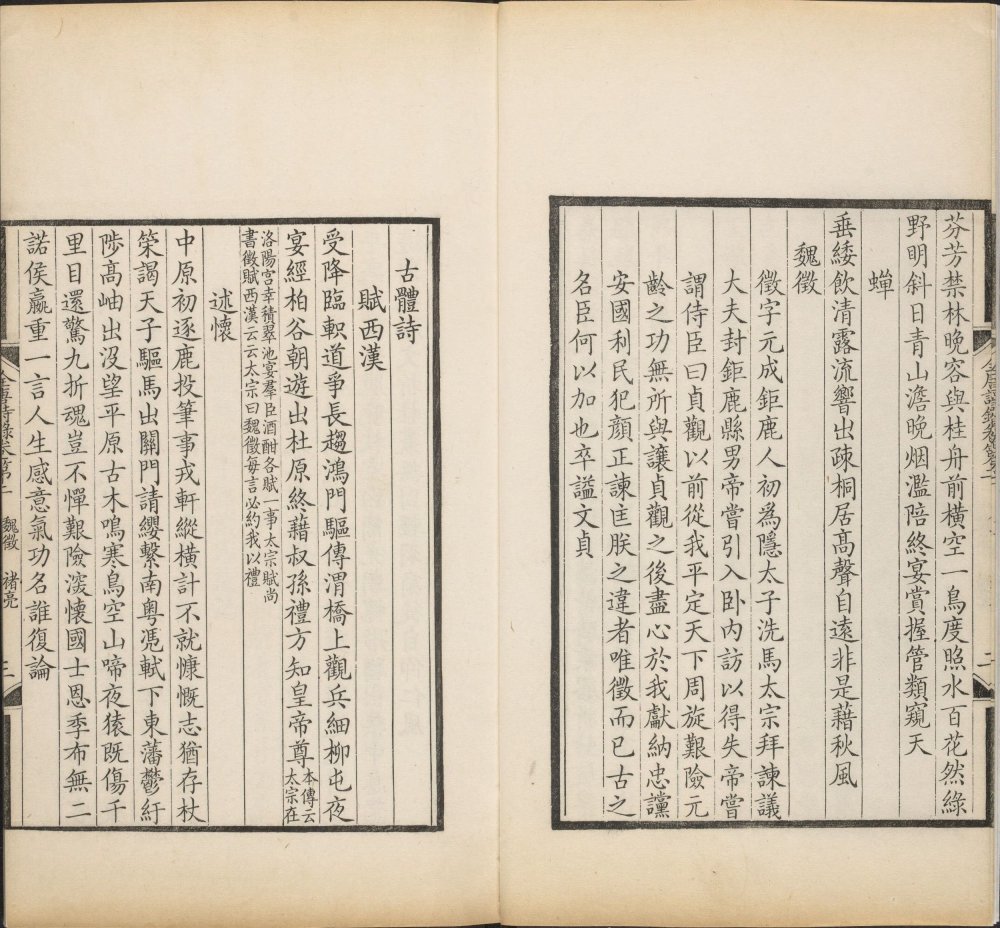 芬芳禁林晚容與桂舟前橫空一鳥度照水百花然綠
野明斜日青山澹晚烟濫陪終宴賞握管類窺天
蟬
垂緌飲清露流響出疎桐居髙聲自遠非是藉秋風
魏徵
徵字元成鉅鹿人初爲隱太子洗馬太宗拜諫議
大夫封鉅鹿縣男帝嘗引入卧内訪以得失帝嘗
謂侍臣曰貞觀以前從我平定天下周旋艱險元
齡之功無所與讓貞觀之後盡心於我獻納忠讜
安國利民犯顏正諫匡朕之違者唯徵而已古之
名臣何以加也卒謚文貞
二
古體詩
賦西漢
受降臨軹道爭長趨鴻門驅傳渭橋上觀兵細柳屯夜
宴經柏谷朝遊出杜原終藉叔孫禮方知皇帝尊本傳云
太宗在
洛陽宮幸積翠池宴羣臣酒酣各賦一事太宗賦尚
書徵賦西漢云云太宗曰魏徵每言必約我以禮
述懷
中原初逐鹿投筆事戎軒縱橫計不就慷慨志猶存杖
策謁天子驅馬出關門請纓繫南粤馮軾下東藩鬱紆
陟髙岫出没望平原古木鳴寒鳥空山啼夜猿既傷千
里目還驚九折魂豈不憚艱險深懷國士恩季布無二
諾侯嬴重一言人生感意氣功名誰復論
全唐詩錄卷第二 魏徵 褚亮 三